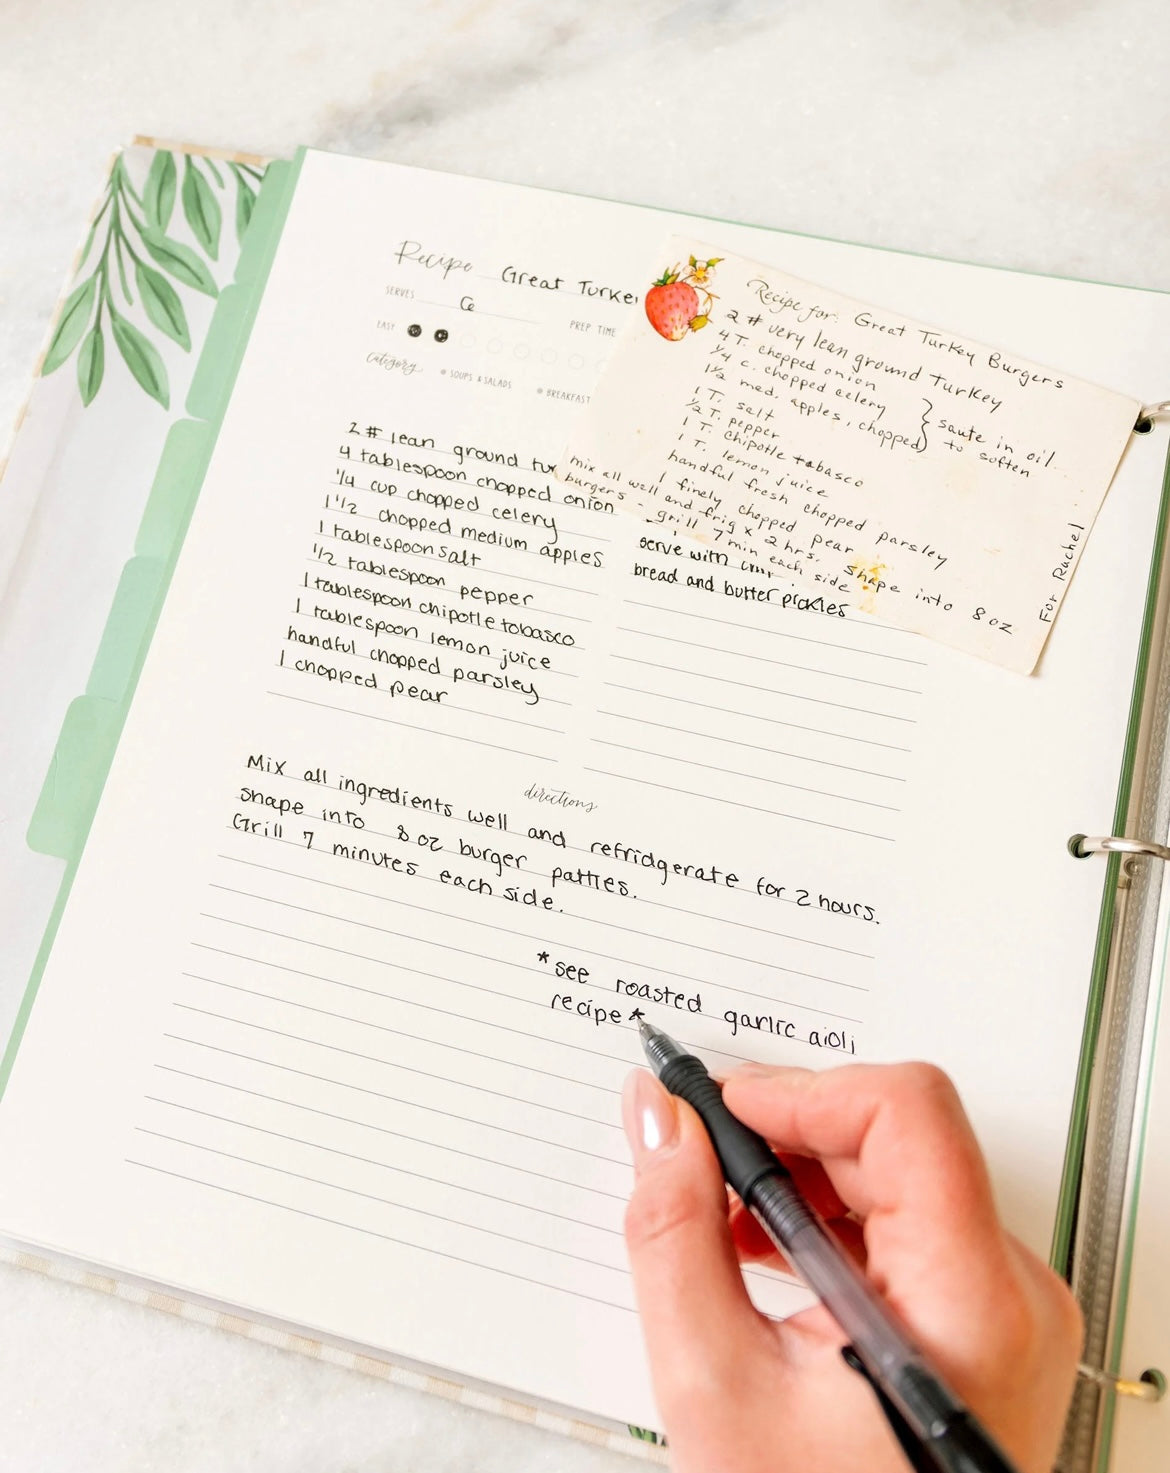 Recipe Great Turke
SERVES 6
EASY PREP TIME
Category SOUPS & SALADS BREAKFAST
2 # lean ground tur
4 tablespoon chopped onion
1/4 cup chopped celery
1 1/2 chopped medium apples
1 tablespoon salt
1/2 tablespoon pepper
1 tablespoon chipotle tobasco
1 tablespoon lemon juice
handful chopped parsley
1 chopped pear
serve with
bread and butter pickles
Recipe for: Great Turkey Burgers
2 # very lean ground Turkey
4 T. chopped onion
1/4 c. chopped celery
1 1/2 med. apples, chopped } saute in oil
to soften
1 T. salt
1/2 T. pepper
1 T. chipotle tabasco
1 T. lemon juice
handful fresh chopped parsley
1 finely chopped pear
mix all well and frig x 2 hrs. Shape into 8 oz
burgers - grill 7 min each side
For Rachel
directions
Mix all ingredients well and refridgerate for 2 hours.
shape into 8 oz burger patties.
Grill 7 minutes each side.
*see roasted garlic aioli
recipe*